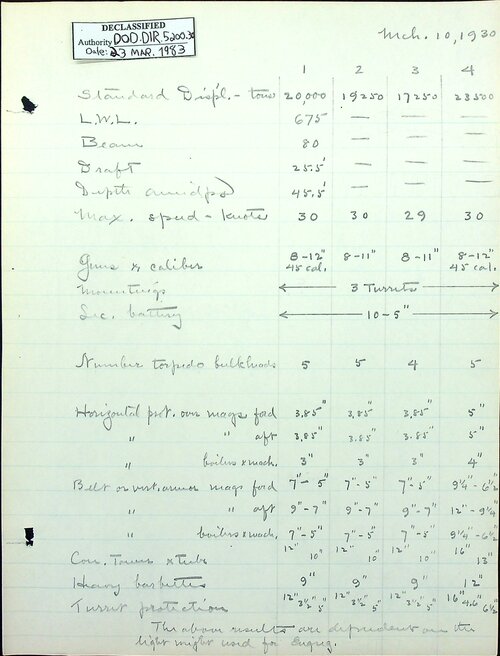 DECLASSIFIED
Authority DOD.DIR.5200.30
Date: 23 MAR. 1983
Mch. 10, 1930
1 2 3 4
Standard Displ. - tons 20,000 19250 17250 23500
L.W.L. 675 — — —
Beam 80 — — —
Draft 25.5' — — —
Depth amidps 45.5' — — —
Max. speed - knots 30 30 29 30
Guns & caliber 8-12" 45 cal. 8-11" 8-11" 8-12" 45 cal.
Mountings 3 Turrets
Sec. battery 10-5"
Number torpedo bulkheads 5 5 4 5
Horizontal prot. over mags ford 3.85" 3.85" 3.85" 5"
" " aft 3.85" 3.85" 3.85" 5"
" boilers & mach. 3" 3" 3" 4"
Belt or vert. armor mags ford 7"-5" 7"-5" 7"-5" 9¼"-6½"
" " aft 9"-7" 9"-7" 9"-7" 12"-9¼"
" boilers & mach. 7"-5" 7"-5" 7"-5" 9¼"-6½"
Con. Tower & tube 12" 10" 12" 10" 12" 10" 16" 13"
Heavy barbettes 9" 9" 9" 12"
Turret protection 12" 3½" 5" 12" 3½" 5" 12" 3½" 5" 16" 4.6" 6½"
The above results are dependent on the
light weight used for Engrg.